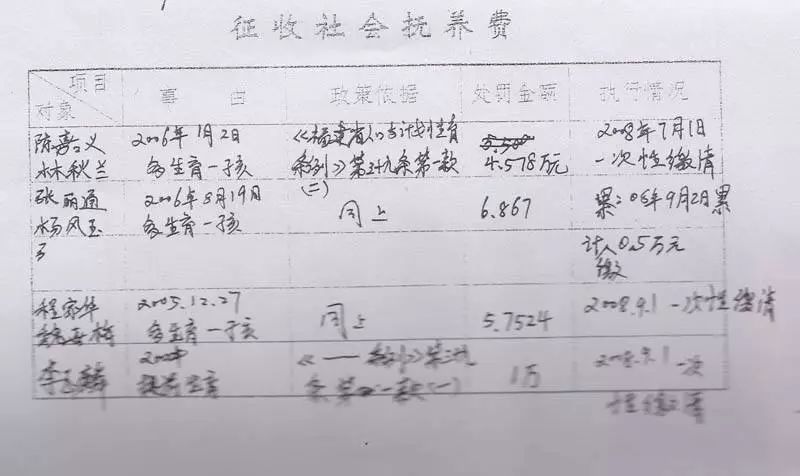 征收社会抚养费
项目
对象
事由
政策依据
处罚金额
执行情况
陈嘉义
林秋兰
2006年1月2日
多生育一孩
《福建省人口与计划生育
条例》第三十九条第一款
(二)
4.578万元
2008年7月1日
一次性缴清
张丽通
杨凤玉
2006年8月19日
多生育一孩
同上
6.867
06年9月2日累
计入0.5万元
缴
程家华
梅
2005.12.27
多生育一孩
同上
5.7524
2008.9.1 一次性缴清
李
提前生育
《——条例》第三十九
条第一款(一)
1万
2008.9.1 一次
性缴清